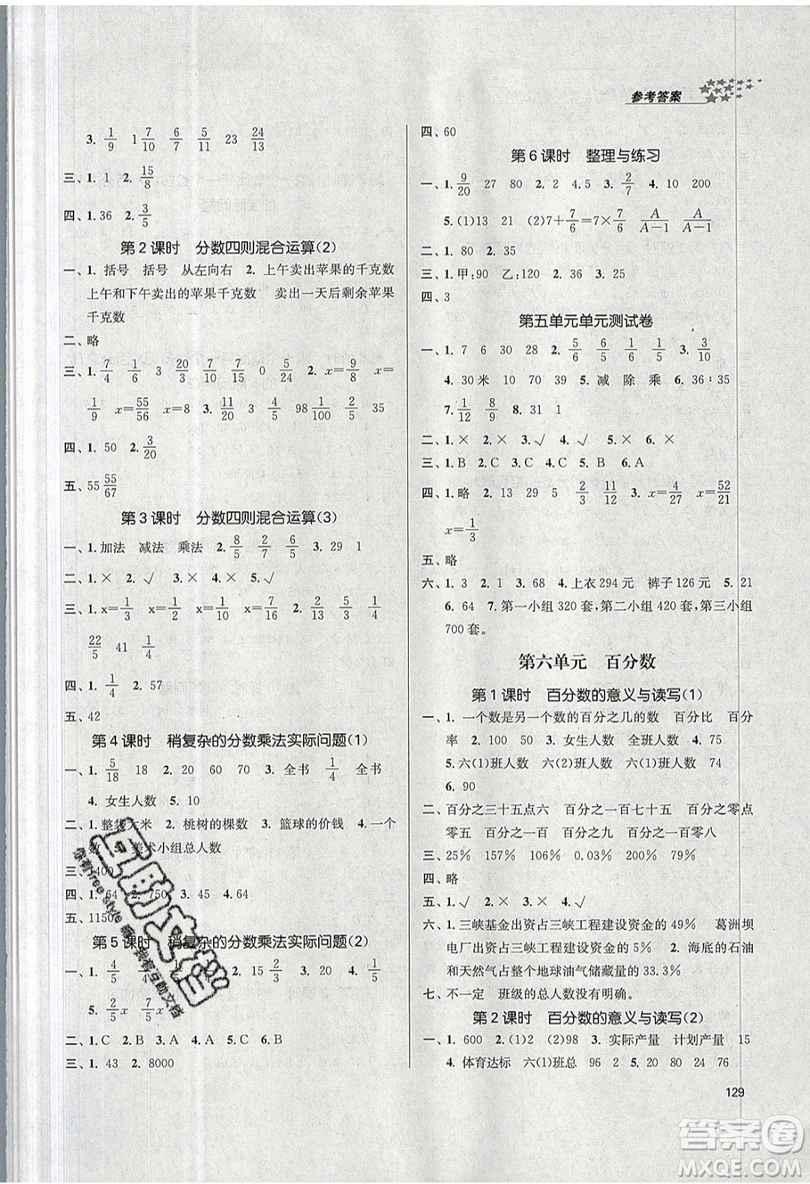 参考答案
3. 1/9 1 7/10 6/11 23 24/13
三、1. 1 2. 15/8
四、1. 36 2. 3/5
第 2 课时 分数四则混合运算(2)
一、1. 括号 括号 从左向右 2. 上午卖出苹果的千克数
上午和下午卖出的苹果千克数 卖出一天后剩余苹果
千克数
二、略
三、1. 7/4 1/6 40 19/35 7/24 4/15 2. x=9/8 x=
1/9 x=55/56 x=11/9 3. 9/20 3/2 1/2 35
四、1. 50 2. 3/20
五、55 55/67
第 3 课时 分数四则混合运算(3)
一、1. 加法 减法 乘法 2. 8/5 2/5 6/5 3. 29 1
二、1. × 2. √ 3. × 4. √
三、1. x=1/3 x=1/4 x=1/10 2. 2/13 3/5 37
22/5 41 1/4
四、1. 1/4 2. 57
五、42
第 4 课时 稍复杂的分数乘法实际问题(1)
一、1. 5/18 18 2. 60 20 15 3. 全书 1/4 全书
4. 女生人数 5. 10
二、1. 大米 2. 桃树的棵数 3. 篮球的价钱 4. 一个
数 美术小组总人数
三、400
四、1. 64 3. 45 4. 64
五、1150
第 5 课时 稍复杂的分数乘法实际问题(2)
一、1. 4/5 2. 15 3. 20 4. 7/6
5. 2/5 x 7/5 x
二、1. C 2. A 3. A 4. C 5. B
三、1. 43 2. 8000
四、60
第 6 课时 整理与练习
一、1. 9/20 27 80 2. 2 4.5 3. 2/7 4. 10 200
5. (1)13 21 (2)7+7/6=7×7/6 A/(A-1) A/(A-1)
二、1. 80 2. 14 3. 24
三、1. 甲:90 乙:120 2. 35
四、3
第五单元单元测试卷
一、1. 7 6 30 28 2. 5/6 1/6 5/6 3. 3/10
4. 30米 10 70 5. 减 除 乘 6. 36∶35
7. 1/12 8/9 8. 9 16 9. 15
二、1. × 2. × 3. √ 4. √ 5. ×
三、1. B 2. C 3. B 4. C 5. C
四、1. 略 2. 13 29 2/5 11/12 6 3. x=4/27 x=52/21
x=1/3
五、略
六、1. 3 2. 1 3. 68 4. 上衣294元 裤子126元 5. 21
6. 64 7. 第一小组 320 套，第二小组 480 套，第三小组
700 套。
第六单元 百分数
第 1 课时 百分数的意义与读写(1)
一、1. 一个数是另一个数的百分之几的数 百分比 百分
率 2. 60 100 3. 女生人数 全班人数 4. 75
5. 六(1)班人数 六(1)班人数 六(2)班人数
6. 90
二、百分之三十五点六 百分之一百七十五 百分之零点
零五 百分之一百 百分之九 百分之一百零八
三、25% 157% 106% 0.03% 200% 0.5%
四、略
五、1. × 2. √ 3. × 4. × 5. ×
六、1. 三峡基金出资占三峡工程建设资金的 49% 葛洲坝
电厂出资占三峡工程建设资金的 5% 2. 海底的石油
和天然气占整个地球油气储藏量的 33.3%
七、不一定 班级的总人数没有明确。
第 2 课时 百分数的意义与读写(2)
一、1. 600 2. (1)2 (2)98 3. 实际产量 计划产量 15
4. 体育达标 六(1)班总 5. 80 20 24 76
129
互助文档
答案圈
MXQE.COM